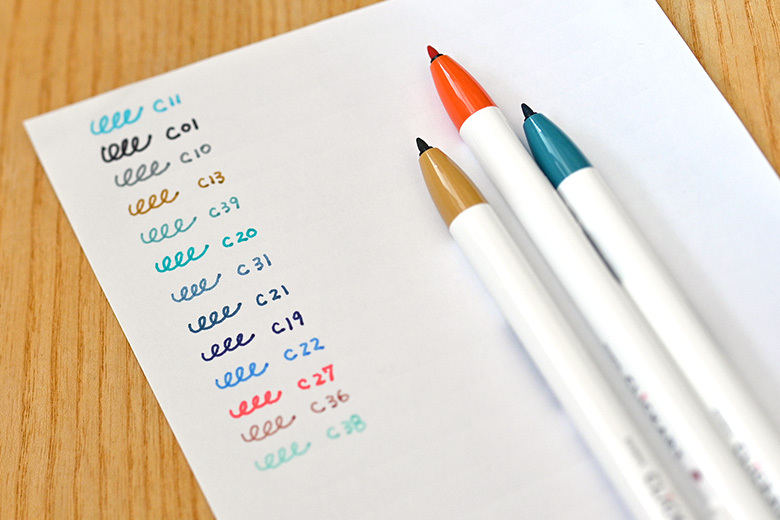 C11
C01
C10
C13
C39
C20
C31
C21
C19
C22
C27
C36
C38